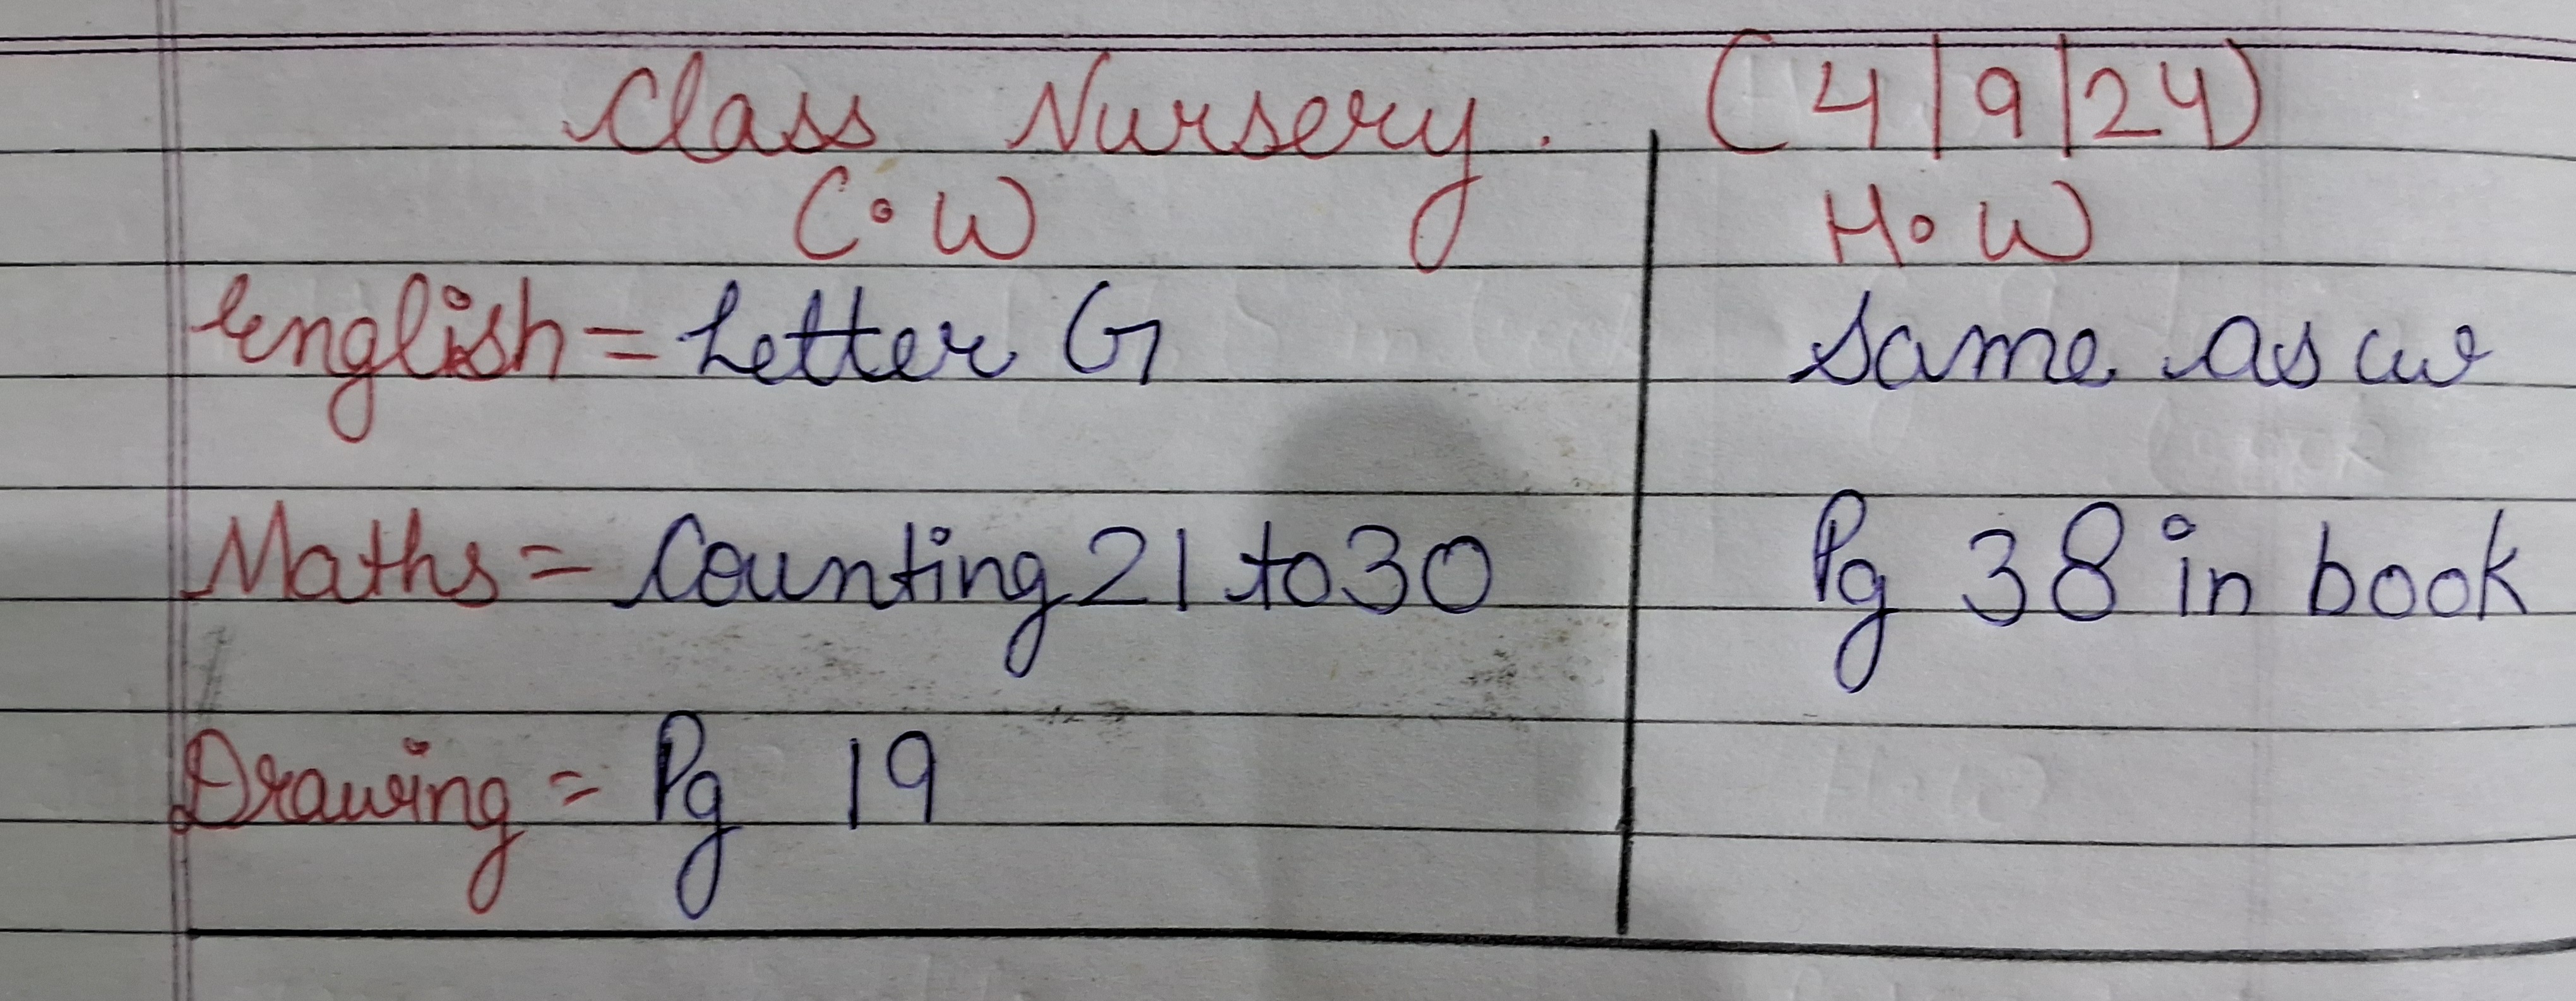 Class Nursery. (4|9|24)
C.W H.W
English = Letter G Same as cw
Maths = Counting 21 to 30 Pg 38 in book
Drawing = Pg 19